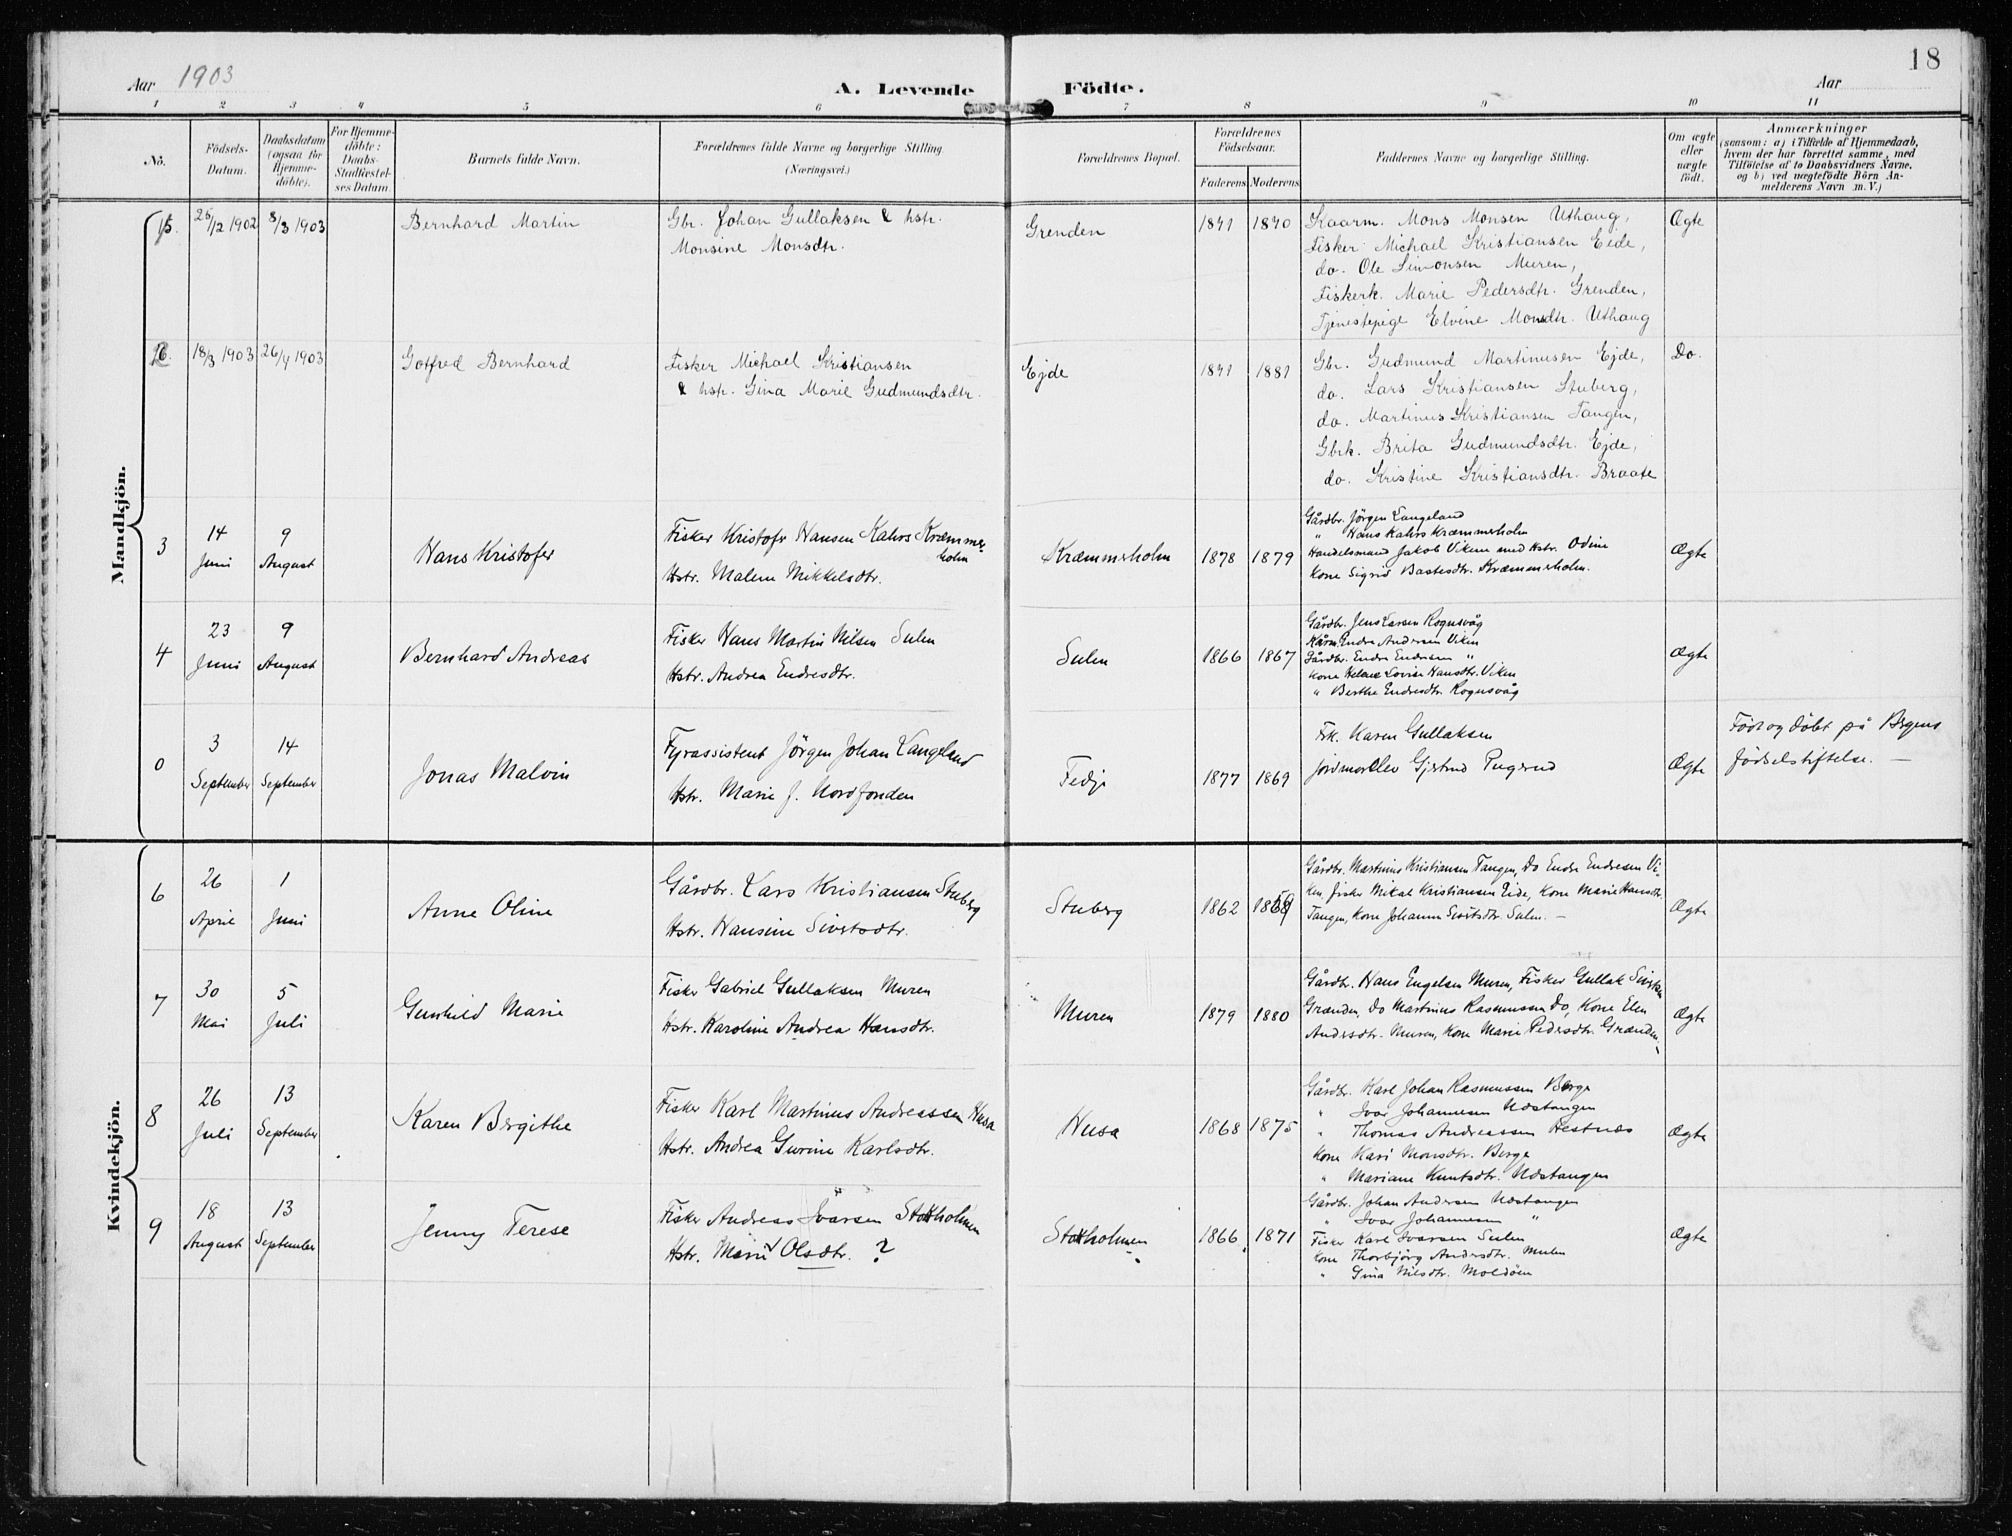 18
Aar 1903
A. Levende Födte.
Aar
1 2 3 4 5 6 7 8 9 10 11
No.
Födsels-
Datum.
Daabsdatum
(ogsaa for
Hjemme-
döbte).
For Hjemme-
döbte:
Daabs-
Stadfæstel-
ses Datum.
Barnets fulde Navn.
Forældrenes fulde Navne og borgerlige Stilling.
(Næringsvei.)
Forældrenes Bopæl.
Forældrenes
Födselsaar.
Faderens Moderens
Faddernes Navne og borgerlige Stilling.
Om ægte
eller
uægte
födt.
Anmærkninger
(saasom: a) i Tilfælde af Hjemmedaab,
hvem der har forrettet samme, med
Tilföielse af to Daabsvidners Navne.
og b) ved uægtefödte Börn An-
melderens Navn m. V.)
Mandkjön.
/12 1902 8/3 1903
Bernhard Martin
Gbr. Johan Gullaksen & hstr.
Monsine Monsdtr.
Grenden
1871 1870
Kaarm. Mons Monsen Uthaug,
Fisker Michael Kristiansen Eide,
do. Ole Simonsen Muren,
Fiskerk. Marie Pedersdtr. Grenden,
Tjenestepige Elvine Monsdtr. Uthaug
Ægte
18/3 1903 26/4 1903
Gotfred Bernhard
Fisker Michael Kristiansen
& hstr. Gina Marie Gudmundsdtr.
Ejde
1871 1881
Gbr. Gudmund Martinusen Ejde,
do. Lars Kristiansen Stuberg,
do. Martinus Kristiansen Tangen,
Gbrk. Brita Gudmundsdtr. Ejde,
do. Kristine Kristiansdtr. Braate
Do.
3
14
Juni
9
August
Hans Kristofer
Fisker Kristofer Hansen Kahrs Kræmmer-
holm
Hstr. Malene Mikkelsdtr.
Kræmmerholm
1878 1879
Gårdbr. Jörgen Langeland
" Hans Kahrs Kræmmerholm
Handelsmand Jakob Viken med Hstr. Odine
Kone Sigrid Bastesdtr. Kræmmerholm.
Ægte
4
23
Juni
9
August
Bernhard Andreas
Fisker Hans Martin Nilsen Sulen
Hstr. Andrea Endresdtr.
Sulen
1866 1867
Gårdbr. Jens Larsen Rognsvåg
Kårm. Endre Andersen Viken
Gårdbr. Endre Endresen "
Kone Helene Lovise Hansdtr. Viken
" Berthe Endresdtr. Rognsvåg
Ægte
0
3
September
14
September
Jonas Malvin
Fyrassistent Jörgen Johan Langeland
Hstr. Marie J. Nordfonden
Fedje
1877 1869
Frk. Karen Gullaksen
Jordmorelev Gjertrud
Ægte
Född og döbt på Bergens
födselstiftelse. —
Kvindekjön.
6
26
April
1
Juni
Anne Oline
Gårdbr. Lars Kristiansen Stuberg
Hstr. Hansine Sivertsdtr.
Stuberg
1862
Gårdbr. Martinus Kristiansen Tangen, Do Endre Endresen Vi-
ken, Fisker Mikal Kristiansen Eide, Kone Marie Hansdtr.
Tangen, Kone Johanne Sivertsdtr. Sulen. —
Ægte
7
30
Mai
5
Juli
Gunhild Marie
Fisker Gabriel Gullaksen Muren
Hstr. Karoline Andrea Hansdtr.
Muren
1879 1880
Gårdbr. Hans Engelsen Muren, Fisker Gullak Sivertsen
Grænden, Do Martinus Rasmussen Do, Kone Elen
Andersdtr. Muren, Kone Marie Pedersdtr. Grænden.
Ægte
8
26
Juli
13
September
Karen Bergithe
Fisker Karl Martinus Andreassen Husa
Hstr. Andrea Gurine Karlsdtr.
Husa
1868 1875
Gårdbr. Karl Johan Rasmussen Berge
" Ivar Johannesen Udstangen
" Thomas Andreassen Hestnes
Kone Kari Monsdtr. Berge
" Mariane Knutsdtr. Udstangen
Ægte
9
18
August
13
September
Jenny Terese
Fisker Andreas Ivarsen Stokholmen
Hstr. Marie Olsdtr. ?
Stokholmen
1866 1871
Gårdbr. Johan Andersen Udstangen
" Ivar Johannesen "
Fisker Karl Ivarsen Sulen
Kone Thorbjörg Andersdtr. Mulen
" Gina Nilsdtr. Moldöen
Ægte